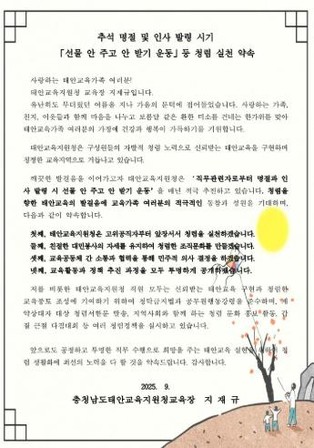 추석 명절 및 인사 발령 시기
「선물 안 주고 안 받기 운동」등 청렴 실천 약속
사랑하는 태안교육가족 여러분!
태안교육지원청 교육장 지재규입니다.
유난히도 무더웠던 여름을 지나 가을의 문턱에 접어들었습니다. 사랑하는 가족,
친지, 이웃들과 함께 마음을 나누고 보름달 같은 환한 미소를 건네는 한가위를 맞아
태안교육가족 여러분의 가정에 건강과 행복이 가득하기를 기원합니다.
태안교육지원청은 구성원들의 자발적 청렴 노력으로 신뢰받는 태안교육을 구현하며
청정한 교육지역으로 거듭나고 있습니다.
깨끗한 발걸음을 이어가고자 태안교육지원청은 '직무관련자로부터 명절과 인
사 발령 시 선물 안 주고 안 받기 운동'을 매년 적극 추진하고 있습니다. 청렴을
향한 태안교육의 발걸음에 교육가족 여러분의 적극적인 동참과 성원을 기대하며,
다음과 같이 약속합니다.
첫째, 태안교육지원청은 고위공직자부터 앞장서서 청렴을 실천하겠습니다.
둘째, 친절한 대민봉사의 자세를 유지하여 청렴한 조직문화를 만들겠습니다.
셋째, 교육공동체 간 소통과 협력을 통해 민주적 의사 결정을 하겠습니다.
넷째, 교육활동과 정책 추진 과정을 모두 투명하게 공개하겠습니다.
저를 비롯한 태안교육지원청 직원 모두는 신뢰받는 태안교육 구현과 청렴한
교육풍토 조성에 기여하기 위하여 청탁금지법과 공무원행동강령을 준수하며,
대상 청렴서한문 발송, 지역사회와 함께 하는 청렴 문화
질 근절 다짐대회 등 여러 청렴정책을 실시하고 있습니다.
앞으로도 공정하고 투명한 직무 수행으로 희망을 주는 태안교육 실현을
렴 생활화에 최선의 노력을 다 할 것을 약속드립니다. 감사합니다.
2025. 9.
충청남도태안교육지원청교육장 지 재 규